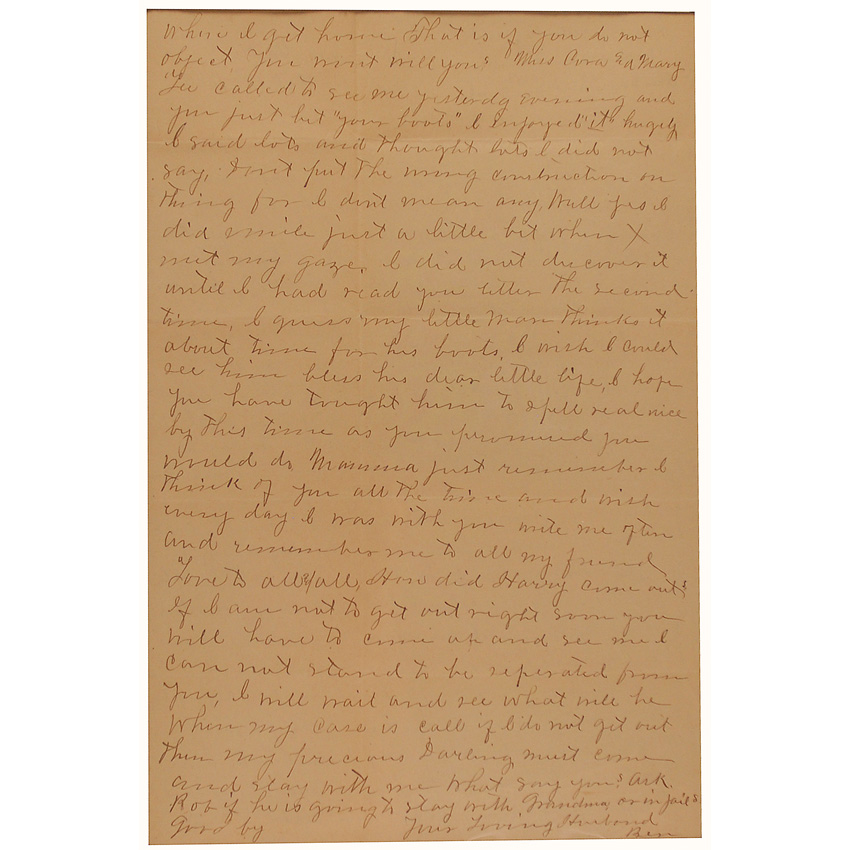 when I get home That is if you do not
object. You wont will you? Miss Cora & Mary
Lee called to see me yesterdy evening and
you just bet "your boots" I enjoyed "it" hugely
I said lots and thought lots I did not
say, Dont put the wrong construction on
thing for I dont mean any, Well yes I
did smile just a little bit when X
met my gaze. I did not discover it
until I had read you letter the second
time, I guess my little man thinks it
about time for his boots, I wish I could
see him bless his dear little life, I hope
you have tought him to spell real nice
by this time as you promised you
would do Mamma just remember I
think of you all the time and wish
every day I was with you write me often
and remember me to all my friend
Love to all & all, How did Harry come out?
If I am not to get out right soon you
will have to come up and see me I
can not stand to be seperated from
you, I will wait and see what will be
when my case is call if I do not get out
then my precious Darling must come
and stay with me What say you? Ask
Rob if he is going to stay with Grandma or in jail?
Good by Your Loving Husband
Ben